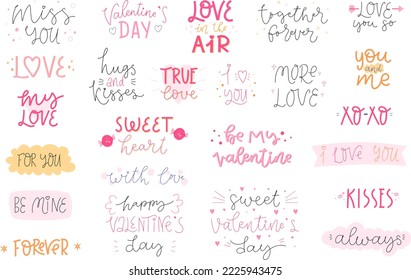 miss you
Valentine's
DAY
LOVE
in the
AIR
together
forever
LOVE
you so
LOVE
hugs
and
kisses
TRUE
love
I
YOU
MORE
LOVE
you
and me
my
LOVE
SWEET
heart
be my
valentine
XO-XO
FOR YOU
with love
I LOVE YOU
BE MINE
happy
VALENTINE'S
day
sweet
valentine's
day
KISSES
FOREVER
always
shutterstock
IMAGE ID: 2225943475
www.shutterstock.com